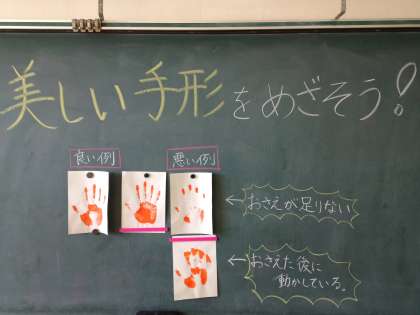 美しい手形をめざそう!
良い例
悪い例
←おさえが足りない
←おさえた後に
動かしている。